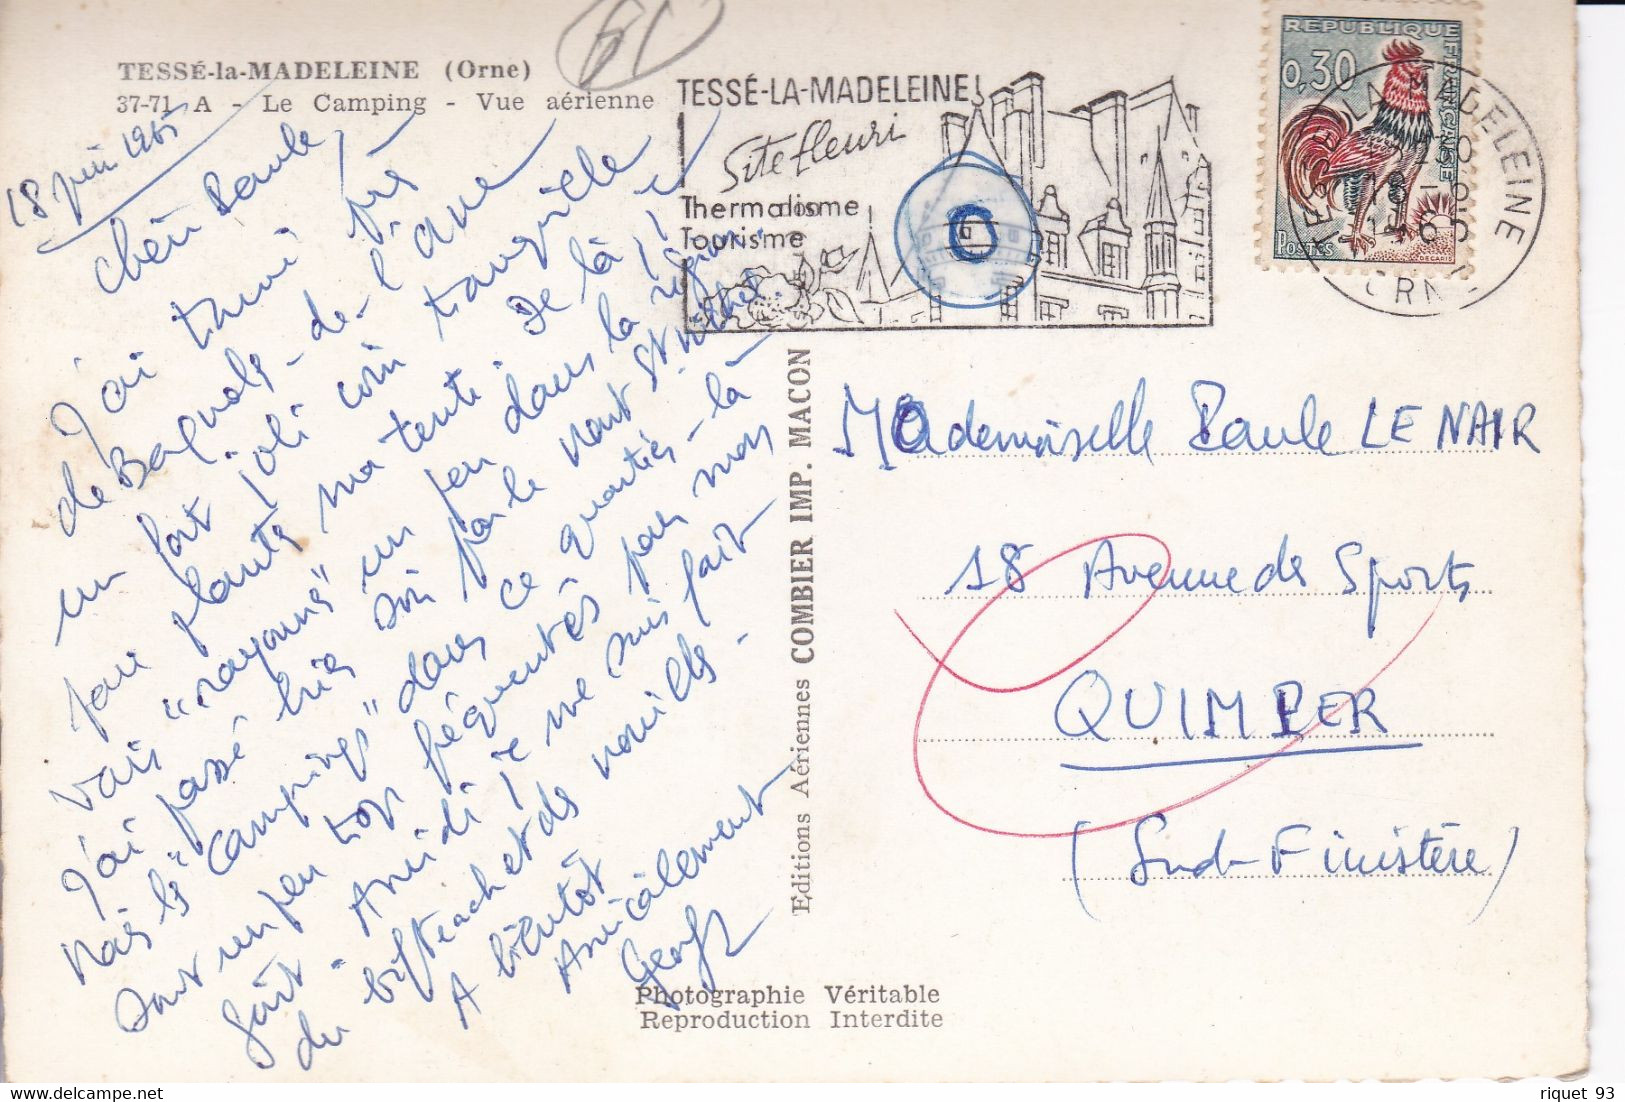 TESSÉ-la-MADELEINE (Orne)
37-71 A - Le Camping - Vue aérienne
18 juin 1965
Chère Paule,
J'ai trouvé près
de Bagnols-de-l'Orne
un fort joli coin tranquille
pour planter ma tente. De là je
vais "rayonner" un peu dans la région.
J'ai passé hier soir par le Mont St Michel
Mais les "Campings" dans ce quartier-là
sont un peu trop fréquentés pour mon
goût. A midi je me suis fait
du bifteack et des nouilles.
A bientôt
Amicalement
TESSÉ-LA-MADELEINE
Site fleuri
Thermalisme
Tourisme
REPUBLIQUE FRANÇAISE
0,30
POSTES
DECARIS
TESSE LA MADELEINE
18-6
1965
ORNE
Mademoiselle Paule LE NAIR
18 Avenue des Sports
QUIMPER
(Sud-Finistère)
Editions Aériennes COMBIER IMP. MACON
Photographie Véritable
Reproduction Interdite
riquet 93